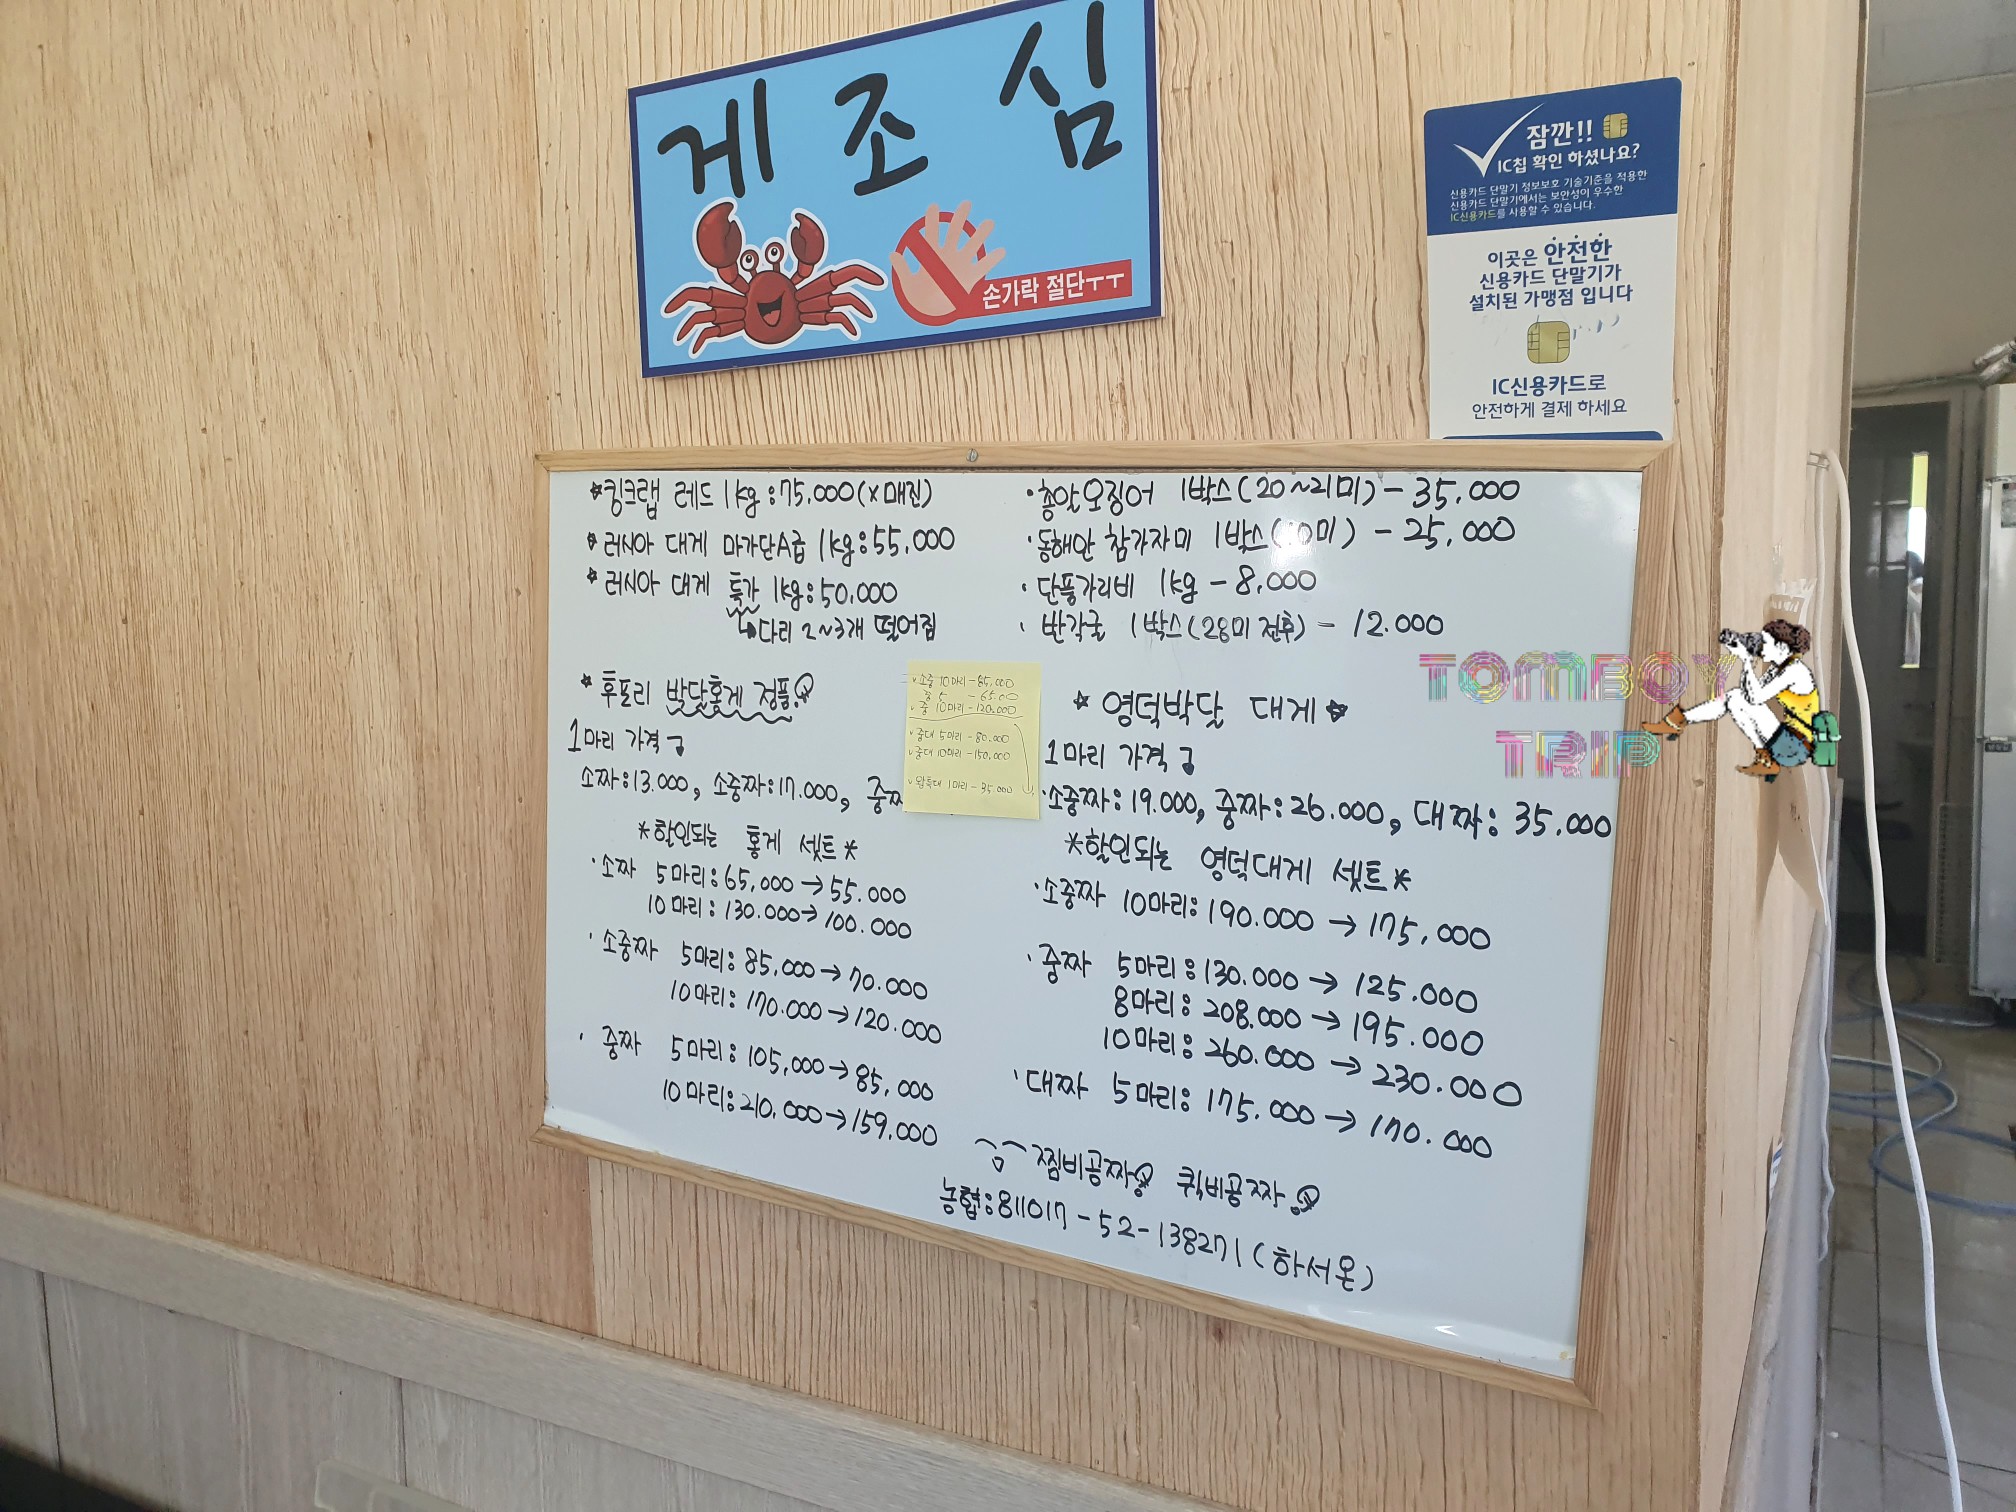 게 조 심
손가락 절단ㅜㅜ
잠깐!!
IC칩 확인 하셨나요?
신용카드 단말기 정보보호 기술기준을 적용한
신용카드 단말기에서는 보안성이 우수한
IC신용카드를 사용할 수 있습니다.
이곳은 안전한
신용카드 단말기가
설치된 가맹점 입니다
IC신용카드로
안전하게 결제 하세요
*킹크랩 레드 1kg:75,000(x매진)
*러시아 대게 마가단A급 1kg:55,000
*러시아 대게 특가 1kg:50,000
다리 2~3개 떨어짐
·총알오징어 1박스(20~21미)-35,000
·동해안 참가자미 1박스(10미) -25,000
·단풍가리비 1kg -8,000
·반각굴 1박스(28미 전후)-12.000
*후포리 박달홍게 정품!
1마리 가격
소짜:13.000, 소중짜:17.000, 중짜
*할인되는 홍게 셋트*
·소짜 5마리:65,000→55.000
10마리:130.000→100.000
·소중짜 5마리:85,000→70.000
10마리:170.000→120.000
·중짜 5마리:105,000→85,000
10마리:210.000→159.000
소중 10마리-85,000
중 10마리-120.000
중대 5마리-80.000
중대 10마리-150,000
왕특대 1마리-35.000
*영덕박달 대게*
1마리 가격
·소중짜:19.000, 중짜:26.000, 대짜:35.000
*할인되는 영덕대게 셋트*
·소중짜 10마리:190.000→175,000
·중짜 5마리:130.000→125.000
8마리:208.000→195.000
10마리:260.000→230.000
·대짜 5마리:175.000→170.000
찜비공짜! 퀵비공짜!
농협:811017-52-138271(하서온)
TOMBOY
TRIP